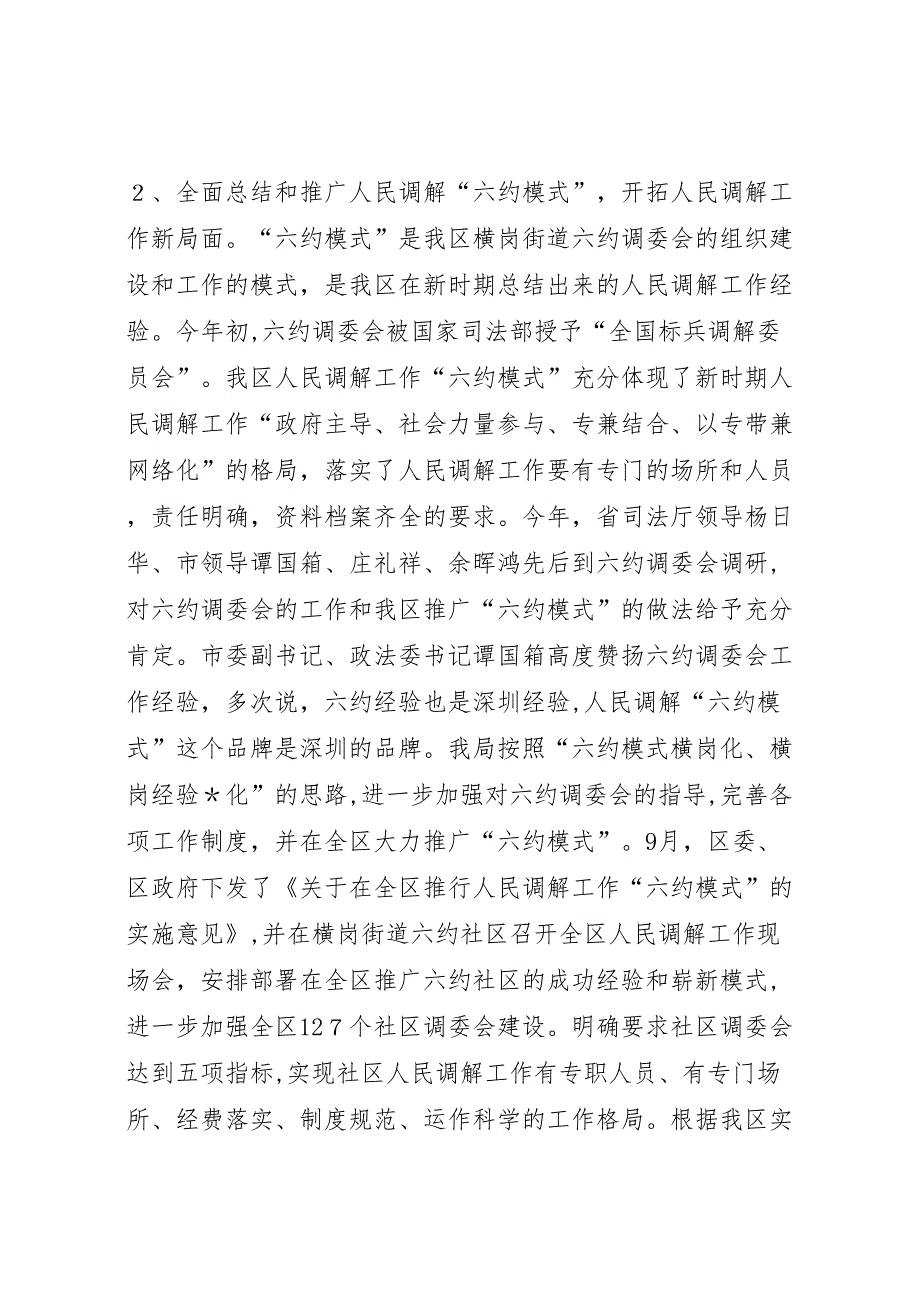 ２、全面总结和推广人民调解“六约模式”，开拓人民调解工
作新局面。“六约模式”是我区横岗街道六约调委会的组织建
设和工作的模式，是我区在新时期总结出来的人民调解工作经
验。今年初,六约调委会被国家司法部授予“全国标兵调解委
员会”。我区人民调解工作“六约模式”充分体现了新时期人
民调解工作“政府主导、社会力量参与、专兼结合、以专带兼
网络化”的格局，落实了人民调解工作要有专门的场所和人员
，责任明确，资料档案齐全的要求。今年，省司法厅领导杨日
华、市领导谭国箱、庄礼祥、余晖鸿先后到六约调委会调研，
对六约调委会的工作和我区推广“六约模式”的做法给予充分
肯定。市委副书记、政法委书记谭国箱高度赞扬六约调委会工
作经验，多次说，六约经验也是深圳经验,人民调解“六约模
式”这个品牌是深圳的品牌。我局按照“六约模式横岗化、横
岗经验＊化”的思路,进一步加强对六约调委会的指导,完善各
项工作制度，并在全区大力推广“六约模式”。9月，区委、
区政府下发了《关于在全区推行人民调解工作“六约模式”的
实施意见》,并在横岗街道六约社区召开全区人民调解工作现
场会，安排部署在全区推广六约社区的成功经验和崭新模式，
进一步加强全区12７个社区调委会建设。明确要求社区调委会
达到五项指标,实现社区人民调解工作有专职人员、有专门场
所、经费落实、制度规范、运作科学的工作格局。根据我区实